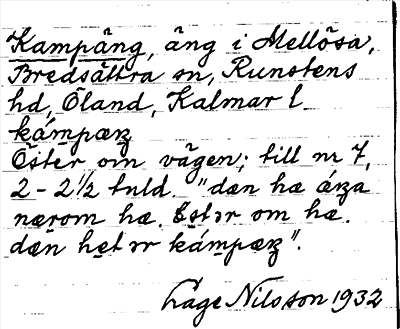 Kampäng, äng i Mellösa,
Bredsättra sn, Runstens
hd, Öland, Kalmar l
kámpæŋ
Öster om vägen; till nr 7,
2 - 2 1/2 tnld. "dæn hæ áŋa
nærom hæ. östər om hæ.
dæn hetər kámpæŋ".
Låge Nilsson 1932